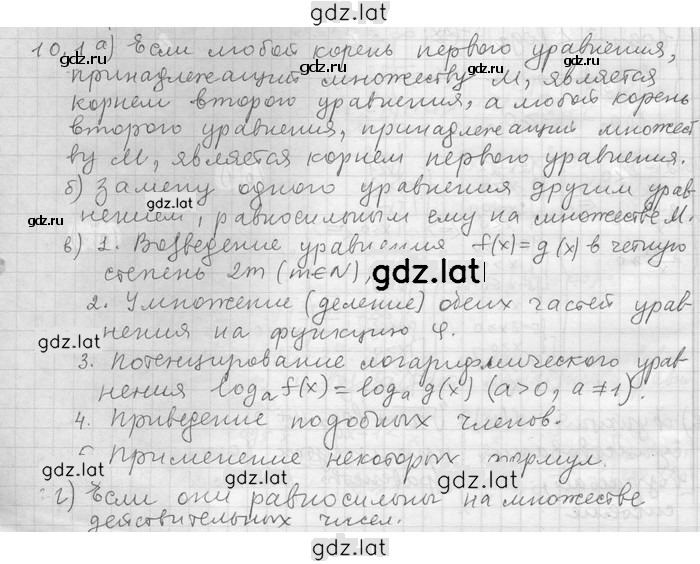 gdz.lat
10.1 а) Если любой корень первого уравнения,
принадлежащий множеству М, является
gdz.lat gdz.lat
корнем второго уравнения, а любой корень
второго уравнения, принадлежащий множест
ву М, является корнем первого уравнения.
gdz.lat
б) Замену одного уравнения другим урав-
нением, равносильным ему на множестве М.
gdz.lat gdz.lat
в) 1. Возведение уравнения f(x)=g(x) в четную
степень 2m (m∈N),
gdz.lat
2. Умножение (деление) обеих частей урав
нения на функцию φ.
gdz.lat
3. Потенцирование логарифмического урав
нения logₐ f(x) = logₐ g(x) (a>0, a≠1).
4. Приведение подобных членов.
gdz.lat
Применение некоторых формул.
gdz.lat gdz.lat
г) Если они равносильны на множестве
действительных чисел.
gdz.lat